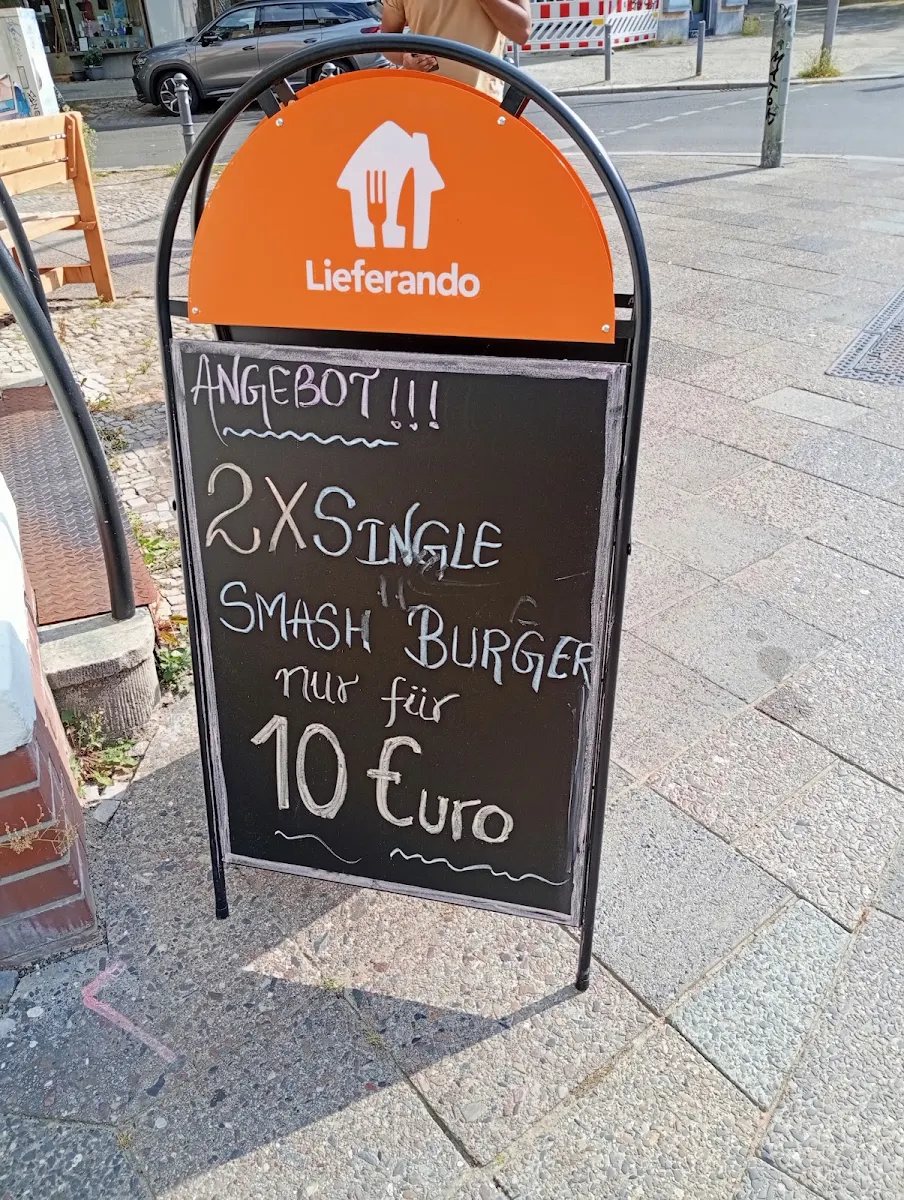 Lieferando
ANGEBOT!!!
2XSINGLE
SMASH BURGER
nur für
10 €uro